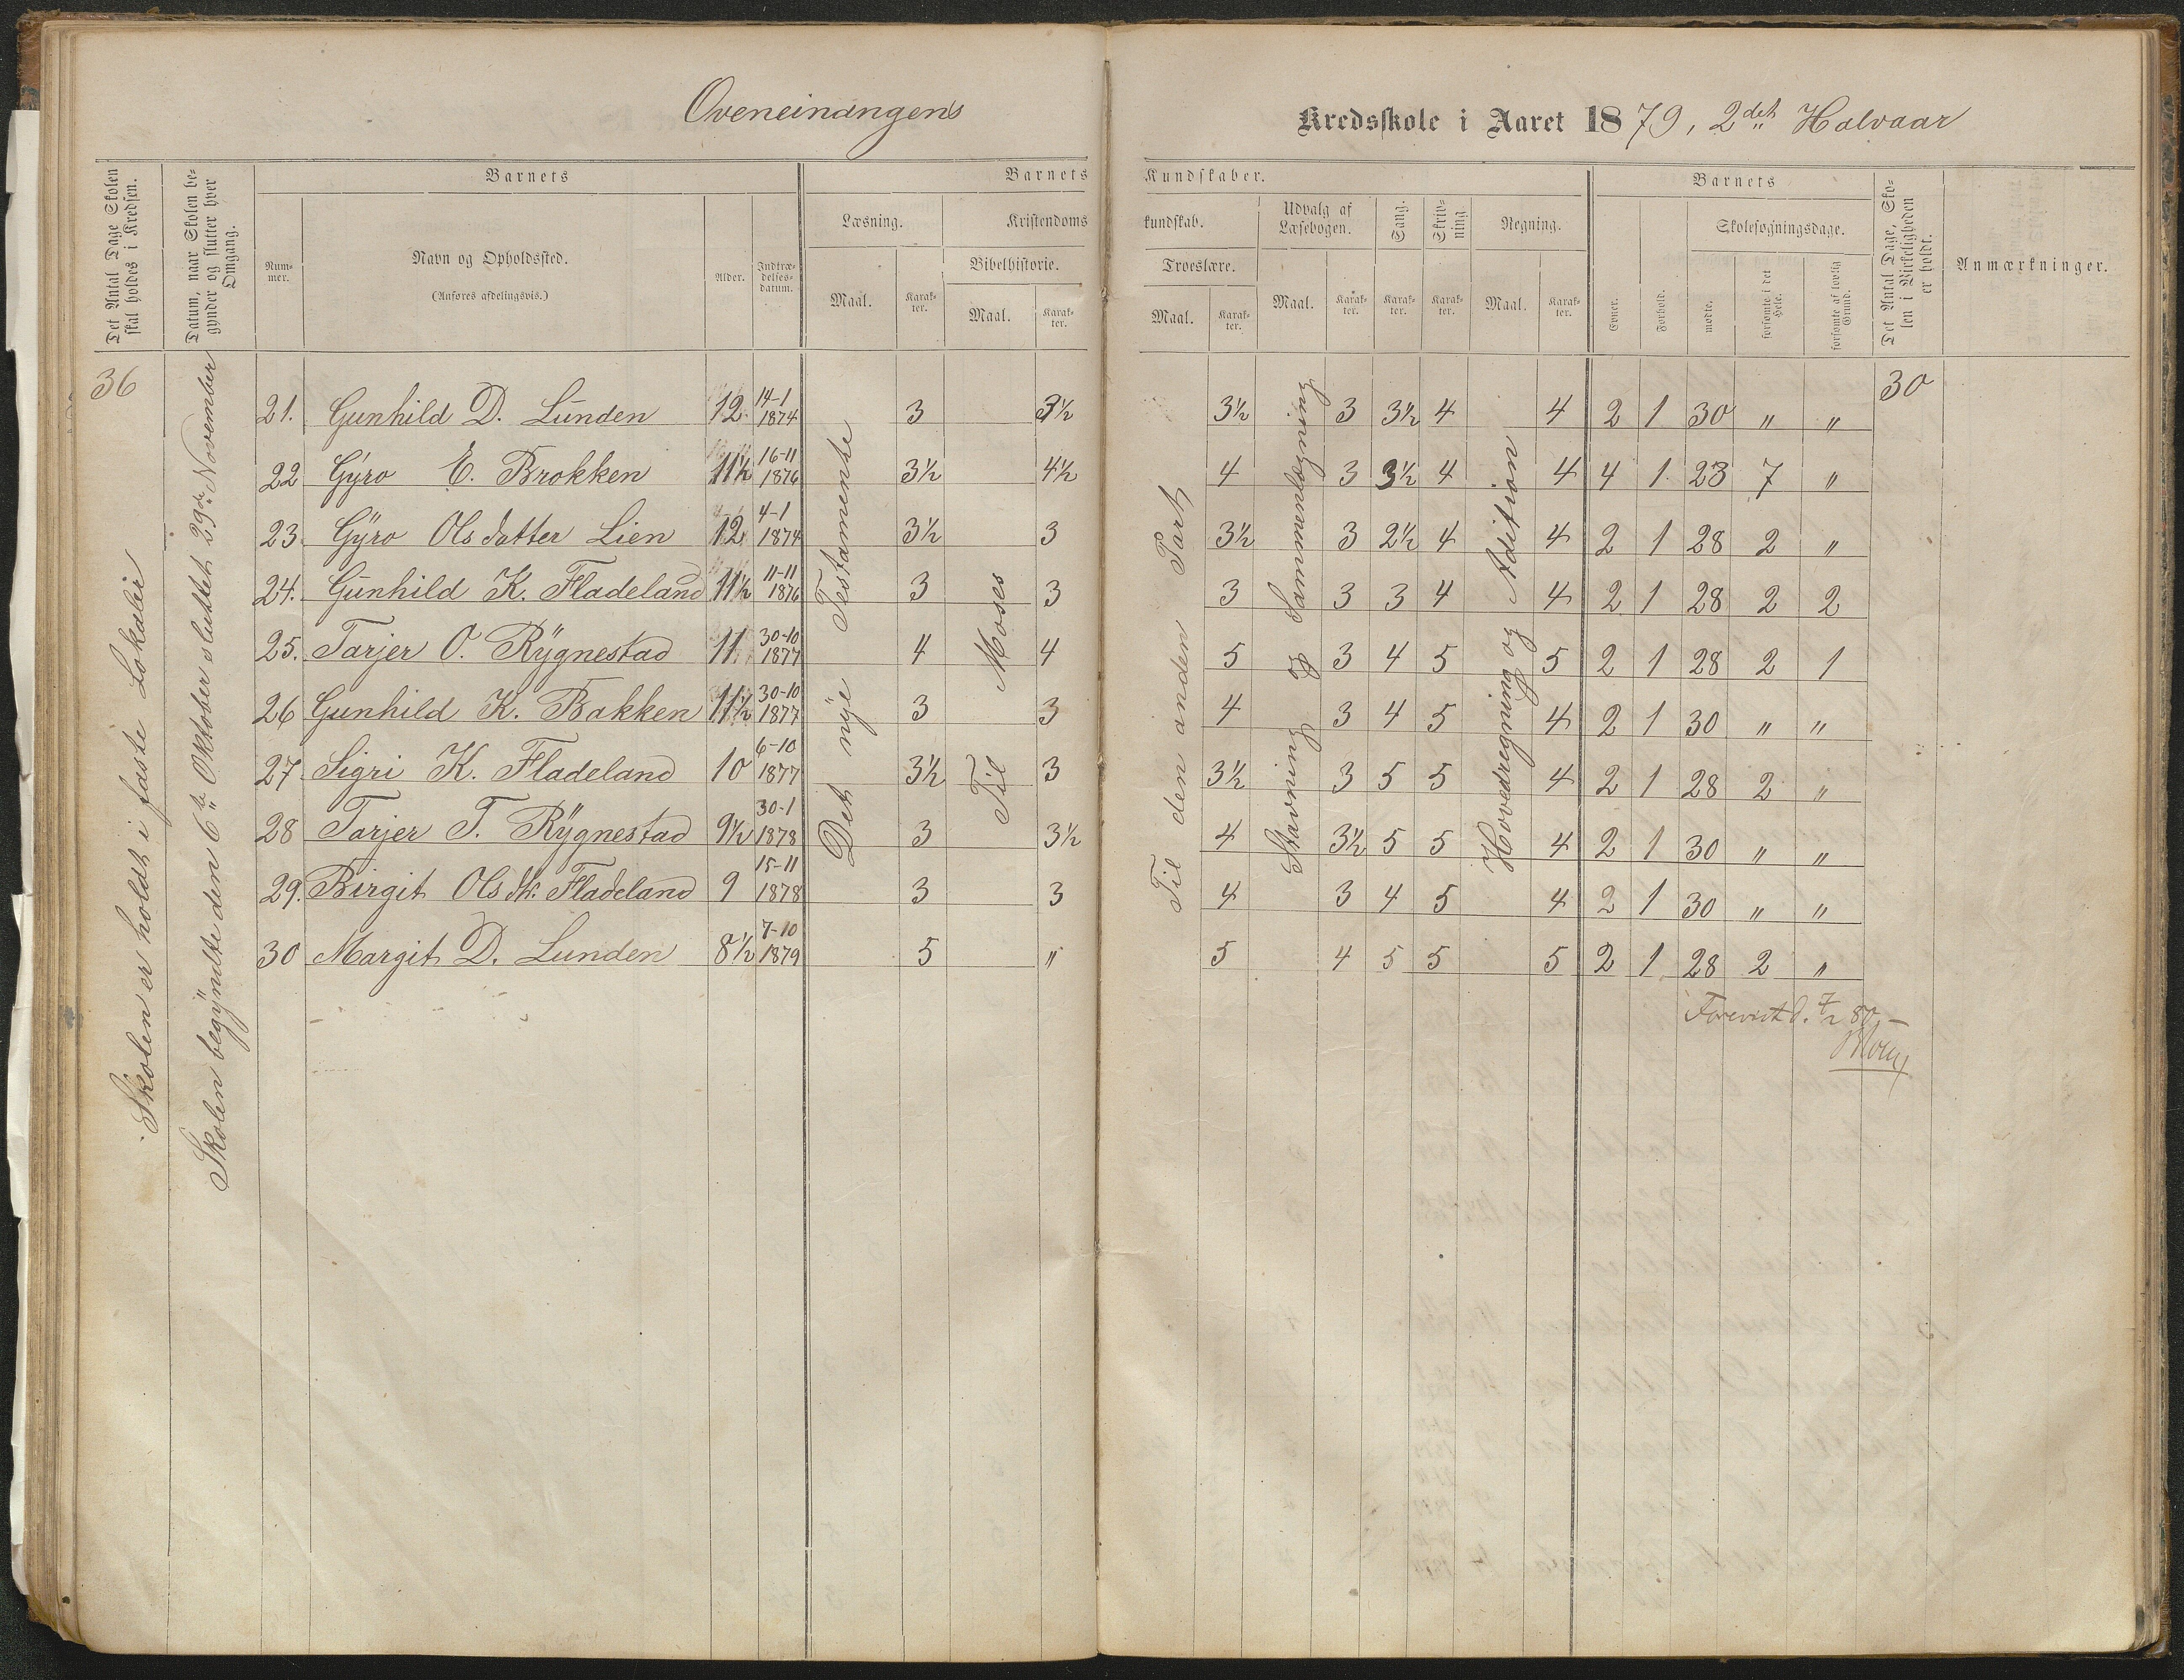 Oveneinangens Kredsskole i Aaret 1879, 2det Halvaar
Det Antal Dage Skolen skal holdes i Kredsen.
Datum, naar Skolen begynder og slutter hver Omgang.
Barnets
Nummer.
Navn og Opholdssted.
(Anføres afdelingsvis.)
Alder.
Indtrædelsesdatum.
Barnets Kundskaber.
Læsning.
Maal.
Karakter.
Kristendomskundskab.
Bibelhistorie.
Maal.
Karakter.
Troeslære.
Maal.
Karakter.
Udvalg af Læsebogen.
Maal.
Karakter.
Sang.
Karakter.
Skrivning.
Karakter.
Regning.
Maal.
Karakter.
Barnets
Evner.
Forhold.
Skolesøgningsdage.
mødte.
forsømte i det Hele.
forsømte af lovlig Grund.
Det Antal Dage, Skolen i Virkeligheden er holdt.
Anmærkninger.
36
Skolen er holdt i faste Lokaler
Skolen begyndte den 6te Oktober sluttet 29de November
Det nye Testamente
Til Moses
Til den anden Part
Stavning og Sammenlægning
Hovedregning og Adition
30
21. Gunhild D. Lunden 12 14-1 1874 3 3½ 3½ 3 3½ 4 4 2 1 30 " "
22 Gyro E. Brokken 11½ 16-11 1876 3½ 4½ 4 3 3½ 4 4 4 1 23 7 "
23. Gyro Olsdatter Lien 12 4-1 1874 3½ 3 3½ 3 2½ 4 4 2 1 28 2 "
24. Gunhild K. Fladeland 11½ 11-11 1876 3 3 3 3 3 4 4 2 1 28 2 2
25. Tarjer O. Rygnestad 11 30-10 1877 4 4 5 3 4 5 5 2 1 28 2 1
26 Gunhild K. Bakken 11½ 30-10 1877 3 3 4 3 4 5 4 2 1 30 " "
27 Sigri K. Fladeland 10 6-10 1877 3½ 3 3½ 3 5 5 4 2 1 28 2 "
28 Tarjer T. Rygnestad 9½ 30-1 1878 3 3½ 4 3½ 5 5 4 2 1 30 " "
29. Birgit Olsdt. Fladeland 9 15-11 1878 3 3 4 3 4 5 4 2 1 30 " "
30 Margit D. Lunden 8½ 7-10 1879 5 " 5 4 5 5 5 2 1 28 2 "
Forevist d. 7/2 80.